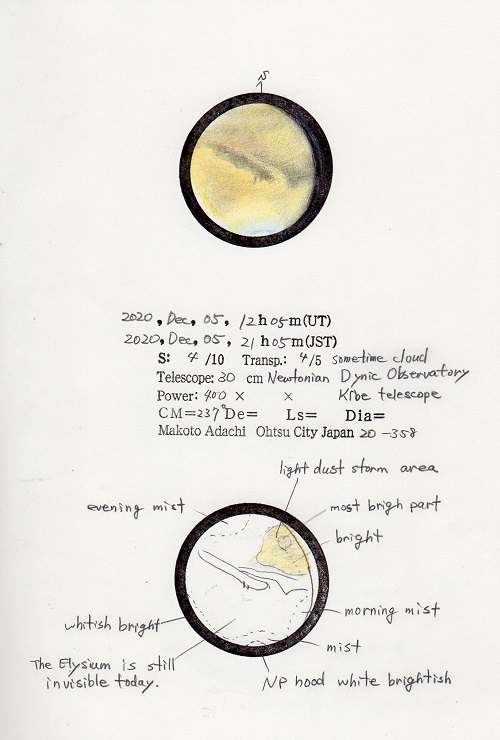 S
2020, Dec, 05, 12h05m(UT)
2020, Dec, 05, 21h05m(JST)
S: 4 /10 Transp.: 4/5 sometime cloud
Telescope: 30 cm Newtonian Dynic Observatory
Power: 400 × × Kibe telescope
CM=237° De= Ls= Dia=
Makoto Adachi Ohtsu City Japan 20-358
light dust storm area
evening mist
most brigh part
bright
morning mist
whitish bright
mist
The Elysium is still
invisible today.
NP hood white brightish